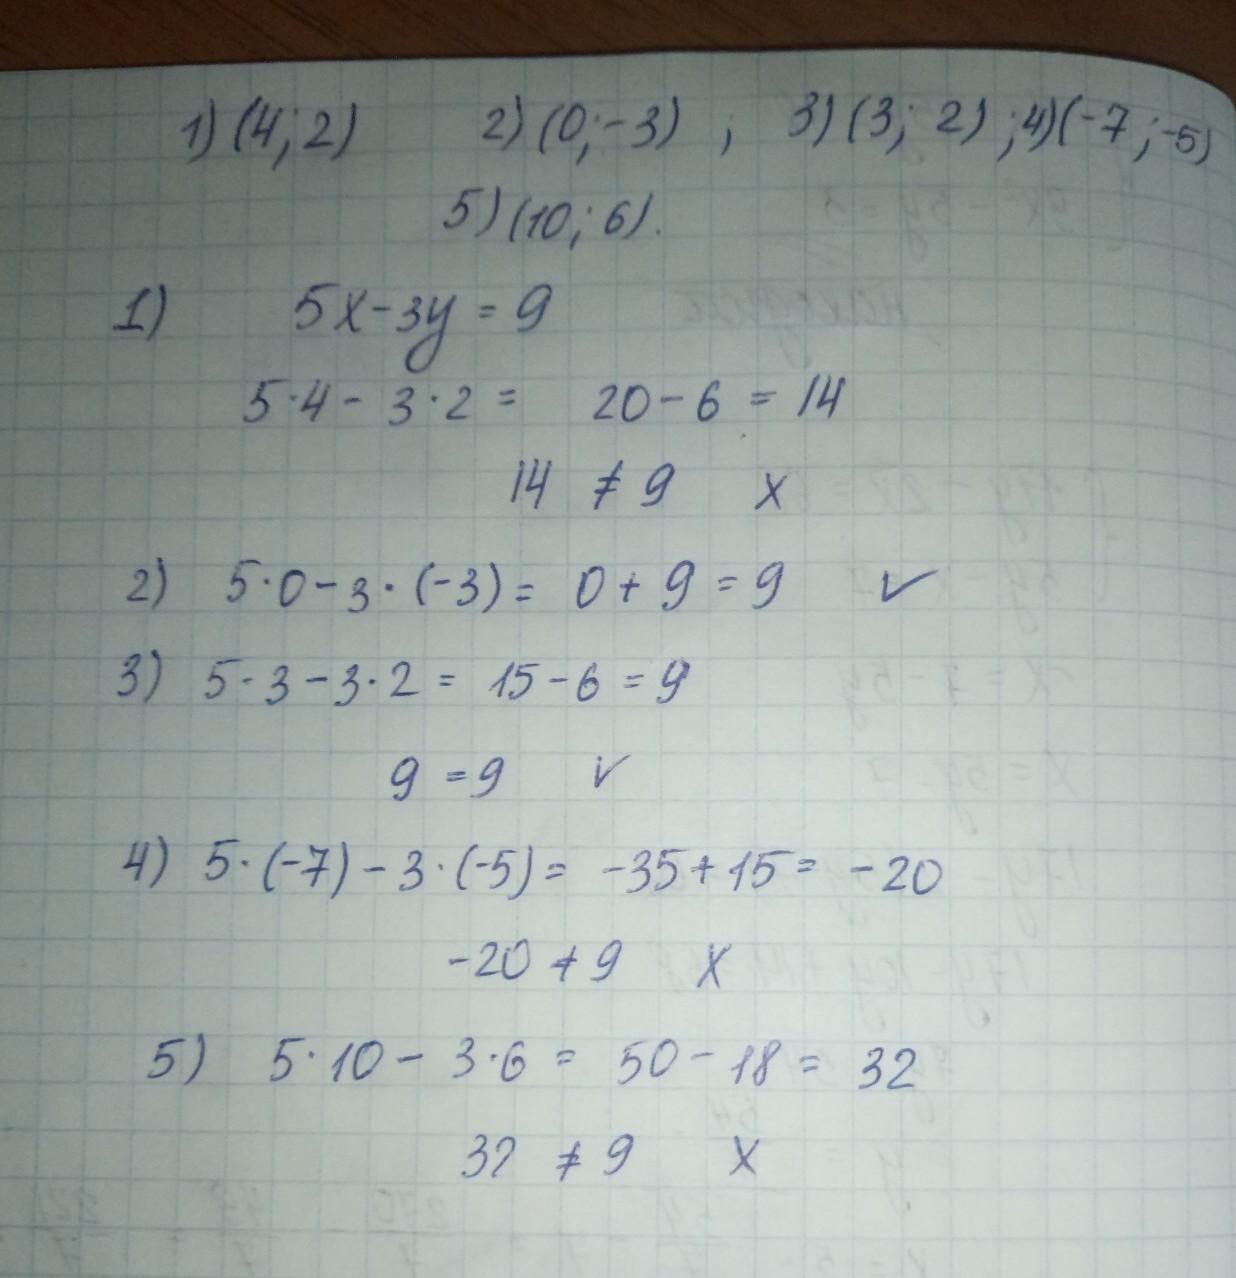 1) (4; 2) 2) (0; -3) ; 3) (3; 2) ; 4) (-7; -5)
5) (10; 6).
1) 5x - 3y = 9
5·4 - 3·2 = 20 - 6 = 14
14 ≠ 9 X
2) 5·0 - 3·(-3) = 0 + 9 = 9 ✓
3) 5·3 - 3·2 = 15 - 6 = 9
9 = 9 ✓
4) 5·(-7) - 3·(-5) = -35 + 15 = -20
-20 ≠ 9 X
5) 5·10 - 3·6 = 50 - 18 = 32
32 ≠ 9 X